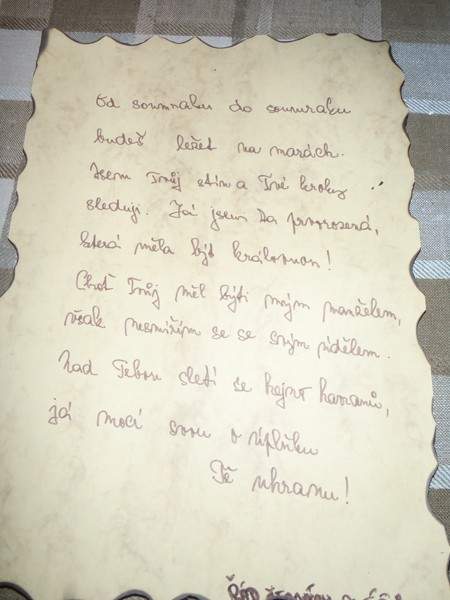 Od soumraku do soumraku
budeš ležet na marách.
Jsem Tvůj stín a Tvé kroky
sleduji. Já jsem ta prvorozená,
která měla být královnou!
Choť Tvůj měl býti mým manželem,
však nesmířím se se svým údělem.
Nad Tebou sletí se hejno havranů,
já mocí svou o úplňku
Tě uhranu!
ŘÁD